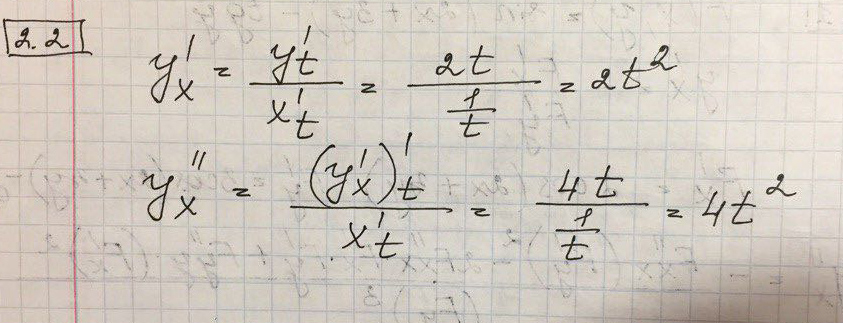 2.2
y'ₓ = y'ₜ / x'ₜ = 2t / (1/t) = 2t²
y''ₓ = (y'ₓ)'ₜ / x'ₜ = 4t / (1/t) = 4t²